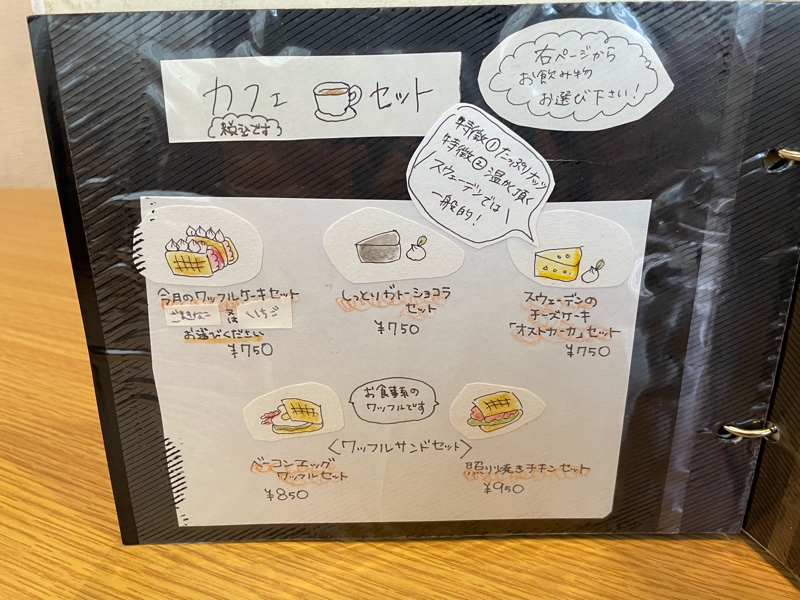 カフェ セット
税込です
右ページから
お飲み物
お選び下さい!
特徴①たっぷりナッツ
特徴②温かく頂く
スウェーデンでは
一般的!
今月のワッフルケーキセット
ごまきなこ 又は いちご
お選びください
¥750
しっとりガトーショコラ
セット
¥750
スウェーデンの
チーズケーキ
「オストカーカ」セット
¥750
お食事系の
ワッフルです
〈ワッフルサンドセット〉
ベーコンエッグ
ワッフルセット
¥850
照り焼きチキンセット
¥950